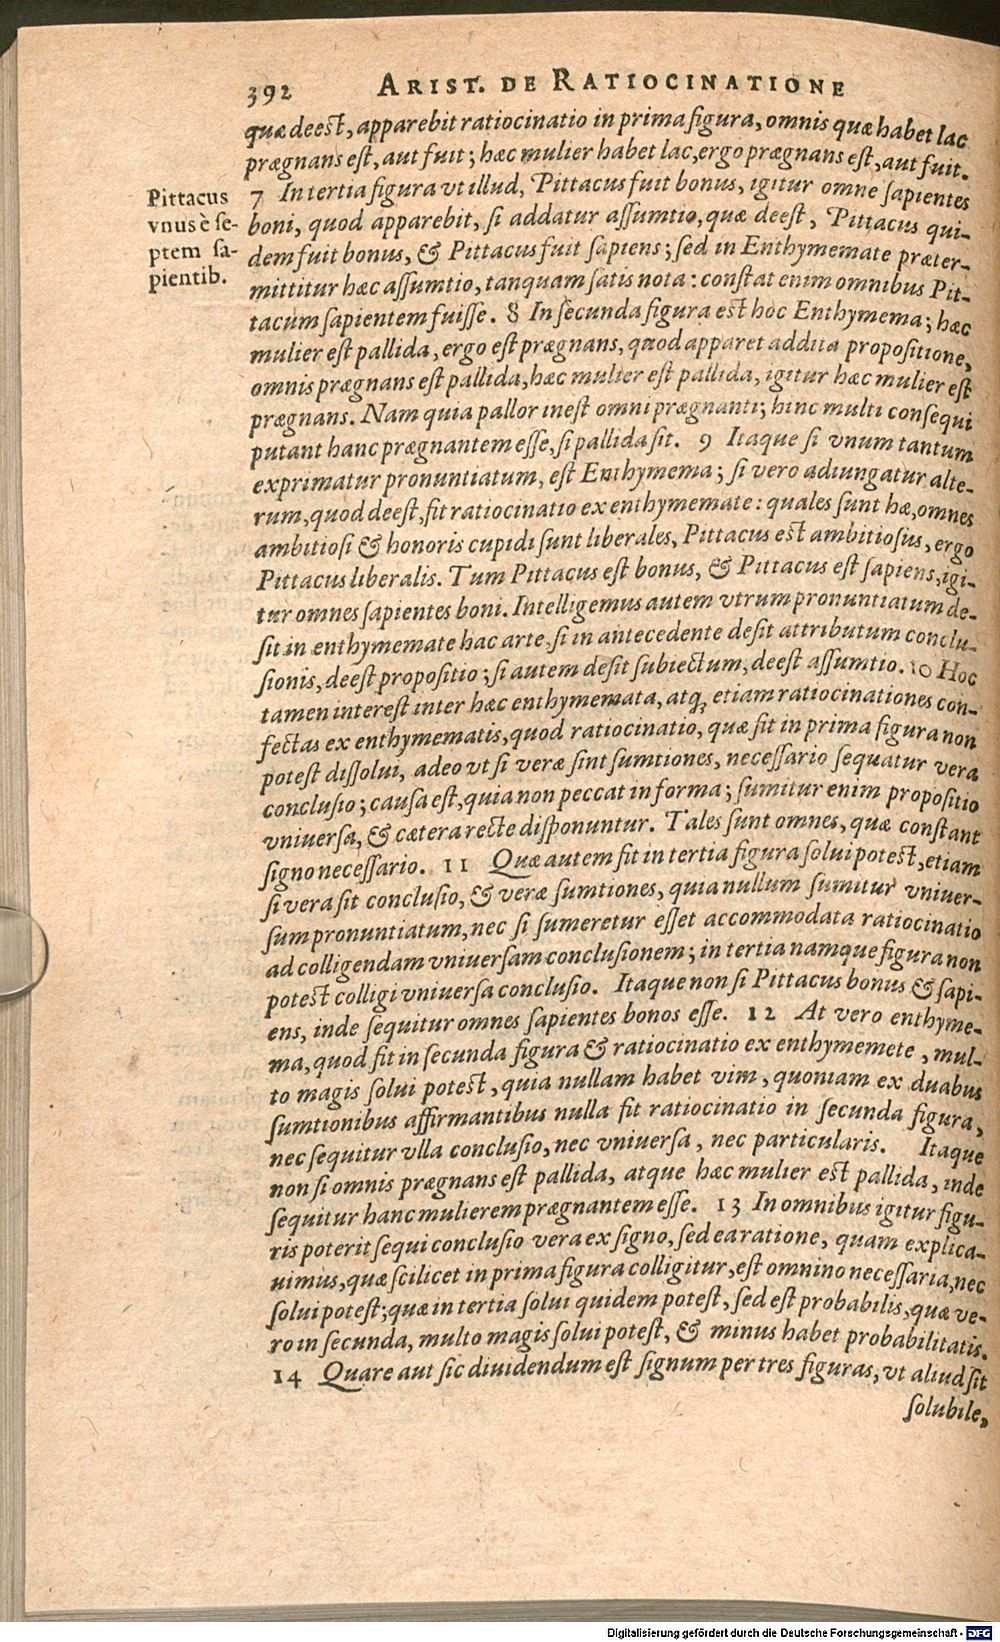 392 ARIST. DE RATIOCINATIONE
quæ deest, apparebit ratiocinatio in prima figura, omnis quæ habet lac
prægnans est, aut fuit; hæc mulier habet lac, ergo prægnans est, aut fuit.
Pittacus
vnus è se-
ptem sa-
pientib.
7 In tertia figura vt illud, Pittacus fuit bonus, igitur omne sapientes
boni, quod apparebit, si addatur assumtio, quæ deest, Pittacus qui-
dem fuit bonus, & Pittacus fuit sapiens; sed in Enthymemate præter-
mittitur hæc assumtio, tanquam satis nota: constat enim omnibus Pit-
tacum sapientem fuisse. 8 In secunda figura est hoc Enthymema; hæc
mulier est pallida, ergo est prægnans, quod apparet addita propositione,
omnis prægnans est pallida, hæc mulier est pallida, igitur hæc mulier est
prægnans. Nam quia pallor inest omni prægnanti; hinc multi consequi
putant hanc prægnantem esse, si pallida sit. 9 Itaque si vnum tantum
exprimatur pronuntiatum, est Enthymema; si vero adiungatur alte-
rum, quod deest, fit ratiocinatio ex enthymemate: quales sunt hæ, omnes
ambitiosi & honoris cupidi sunt liberales, Pittacus est ambitiosus, ergo
Pittacus liberalis. Tum Pittacus est bonus, & Pittacus est sapiens, igi-
tur omnes sapientes boni. Intelligemus autem vtrum pronuntiatum de-
sit in enthymemate hac arte, si in antecedente desit attributum conclu-
sionis, deest propositio; si autem desit subiectum, deest assumtio. 10 Hoc
tamen interest inter hæc enthymemata, atq; etiam ratiocinationes con-
fectas ex enthymematis, quod ratiocinatio, quæ fit in prima figura non
potest dissolui, adeo vt si veræ sint sumtiones, necessario sequatur vera
conclusio; causa est, quia non peccat in forma; sumitur enim propositio
vniuersa, & cætera recte disponuntur. Tales sunt omnes, quæ constant
signo necessario. 11 Quæ autem fit in tertia figura solui potest, etiam
si vera sit conclusio, & veræ sumtiones, quia nullum sumitur vniuer-
sum pronuntiatum, nec si sumeretur esset accommodata ratiocinatio
ad colligendam vniuersam conclusionem; in tertia namque figura non
potest colligi vniuersa conclusio. Itaque non si Pittacus bonus & sapi-
ens, inde sequitur omnes sapientes bonos esse. 12 At vero enthyme-
ma, quod fit in secunda figura & ratiocinatio ex enthymemete, mul-
to magis solui potest, quia nullam habet vim, quoniam ex duabus
sumtionibus affirmantibus nulla fit ratiocinatio in secunda figura,
nec sequitur vlla conclusio, nec vniuersa, nec particularis. Itaque
non si omnis prægnans est pallida, atque hæc mulier est pallida, inde
sequitur hanc mulierem prægnantem esse. 13 In omnibus igitur figu-
ris poterit sequi conclusio vera ex signo, sed ea ratione, quam explica-
uimus, quæ scilicet in prima figura colligitur, est omnino necessaria, nec
solui potest; quæ in tertia solui quidem potest, sed est probabilis, quæ ve-
ro in secunda, multo magis solui potest, & minus habet probabilitatis.
14 Quare aut sic diuidendum est signum per tres figuras, vt aliud sit
solubile,
Digitalisierung gefördert durch die Deutsche Forschungsgemeinschaft - DFG